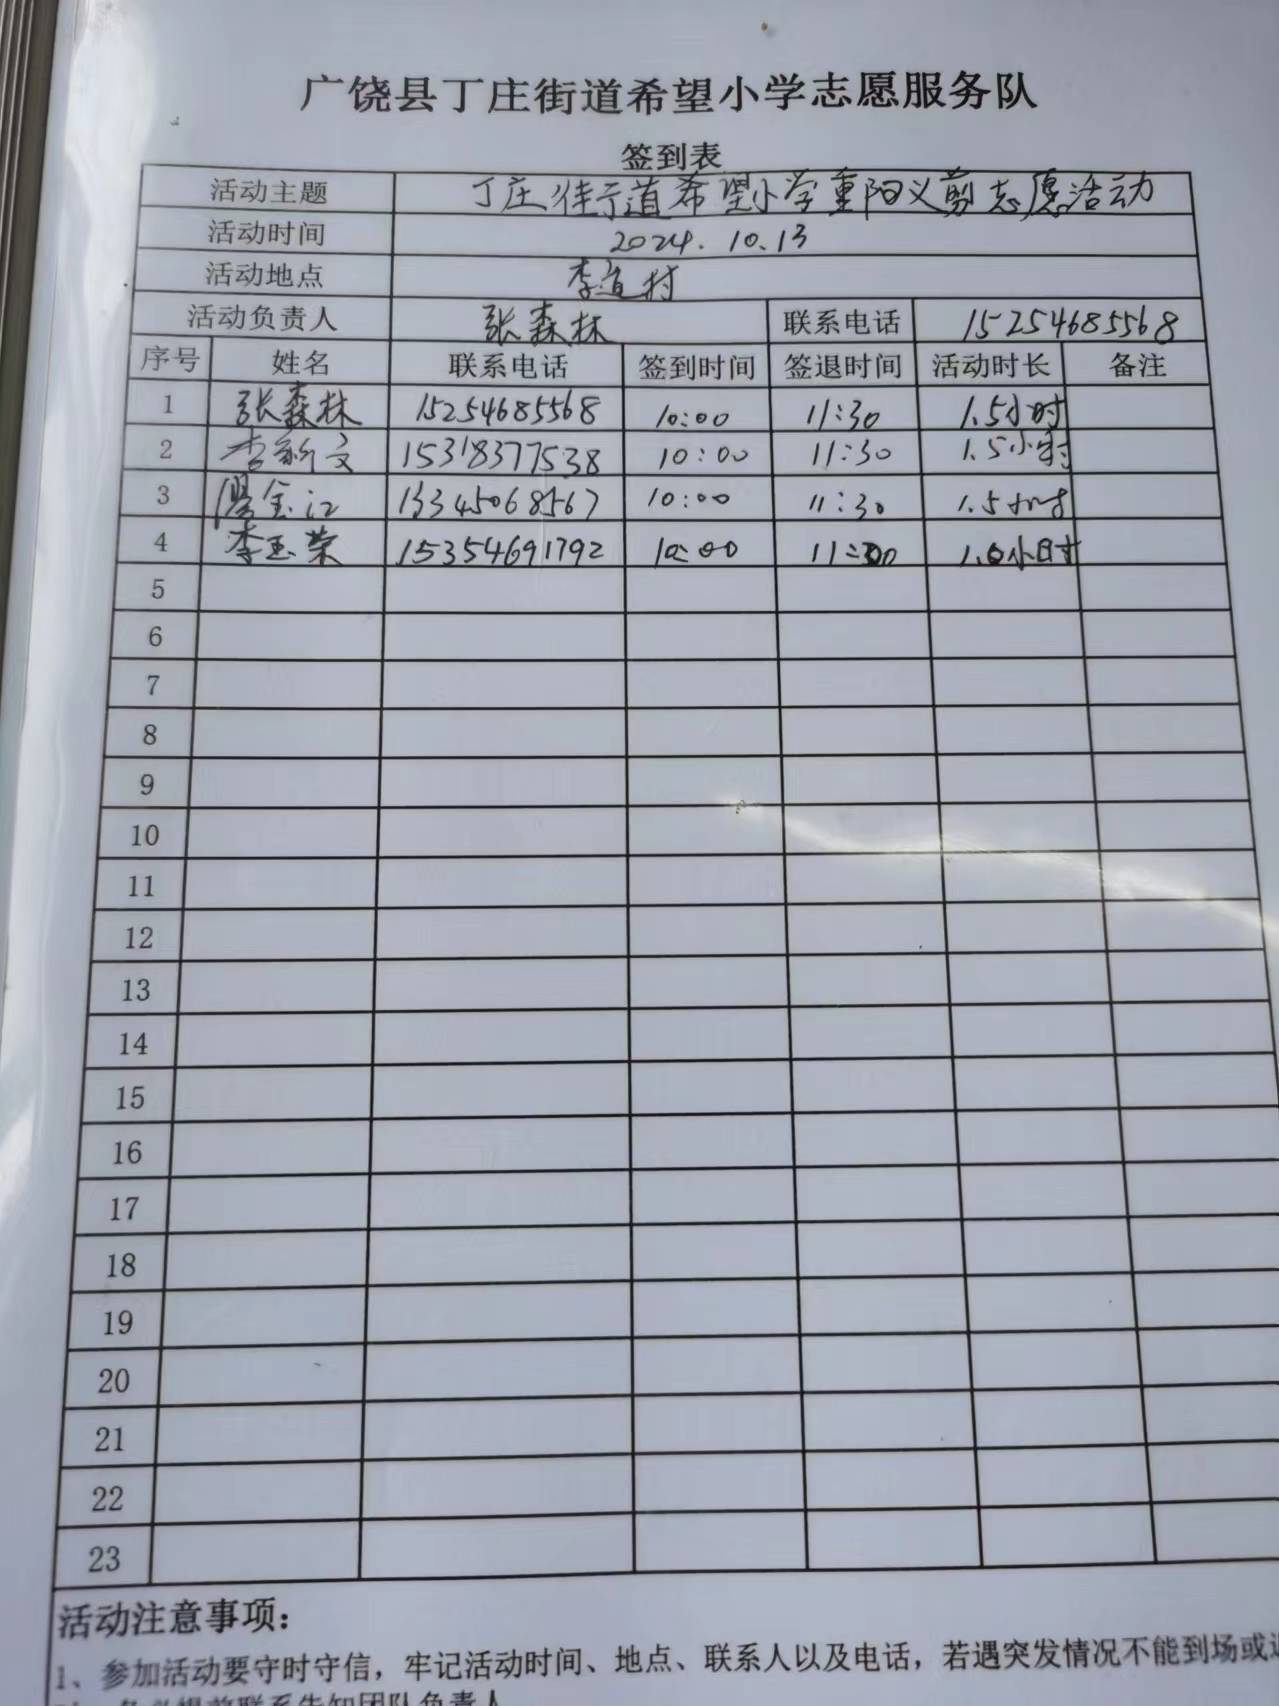 广饶县丁庄街道希望小学志愿服务队
签到表
活动主题 丁庄街道希望小学重阳义剪志愿活动
活动时间 2024.10.13
活动地点 李道村
活动负责人 张森林 联系电话 15254685568
序号 姓名 联系电话 签到时间 签退时间 活动时长 备注
1 张森林 15254685568 10:00 11:30 1.5小时
2 李新文 15318377538 10:00 11:30 1.5小时
3 金江 13345068567 10:00 11:30 1.5小时
4 李玉荣 15354691792 10:00 11:00 1.0小时
5
6
7
8
9
10
11
12
13
14
15
16
17
18
19
20
21
22
23
活动注意事项：
1、参加活动要守时守信，牢记活动时间、地点、联系人以及电话，若遇突发情况不能到场或
务必提前联系告知团队负责人